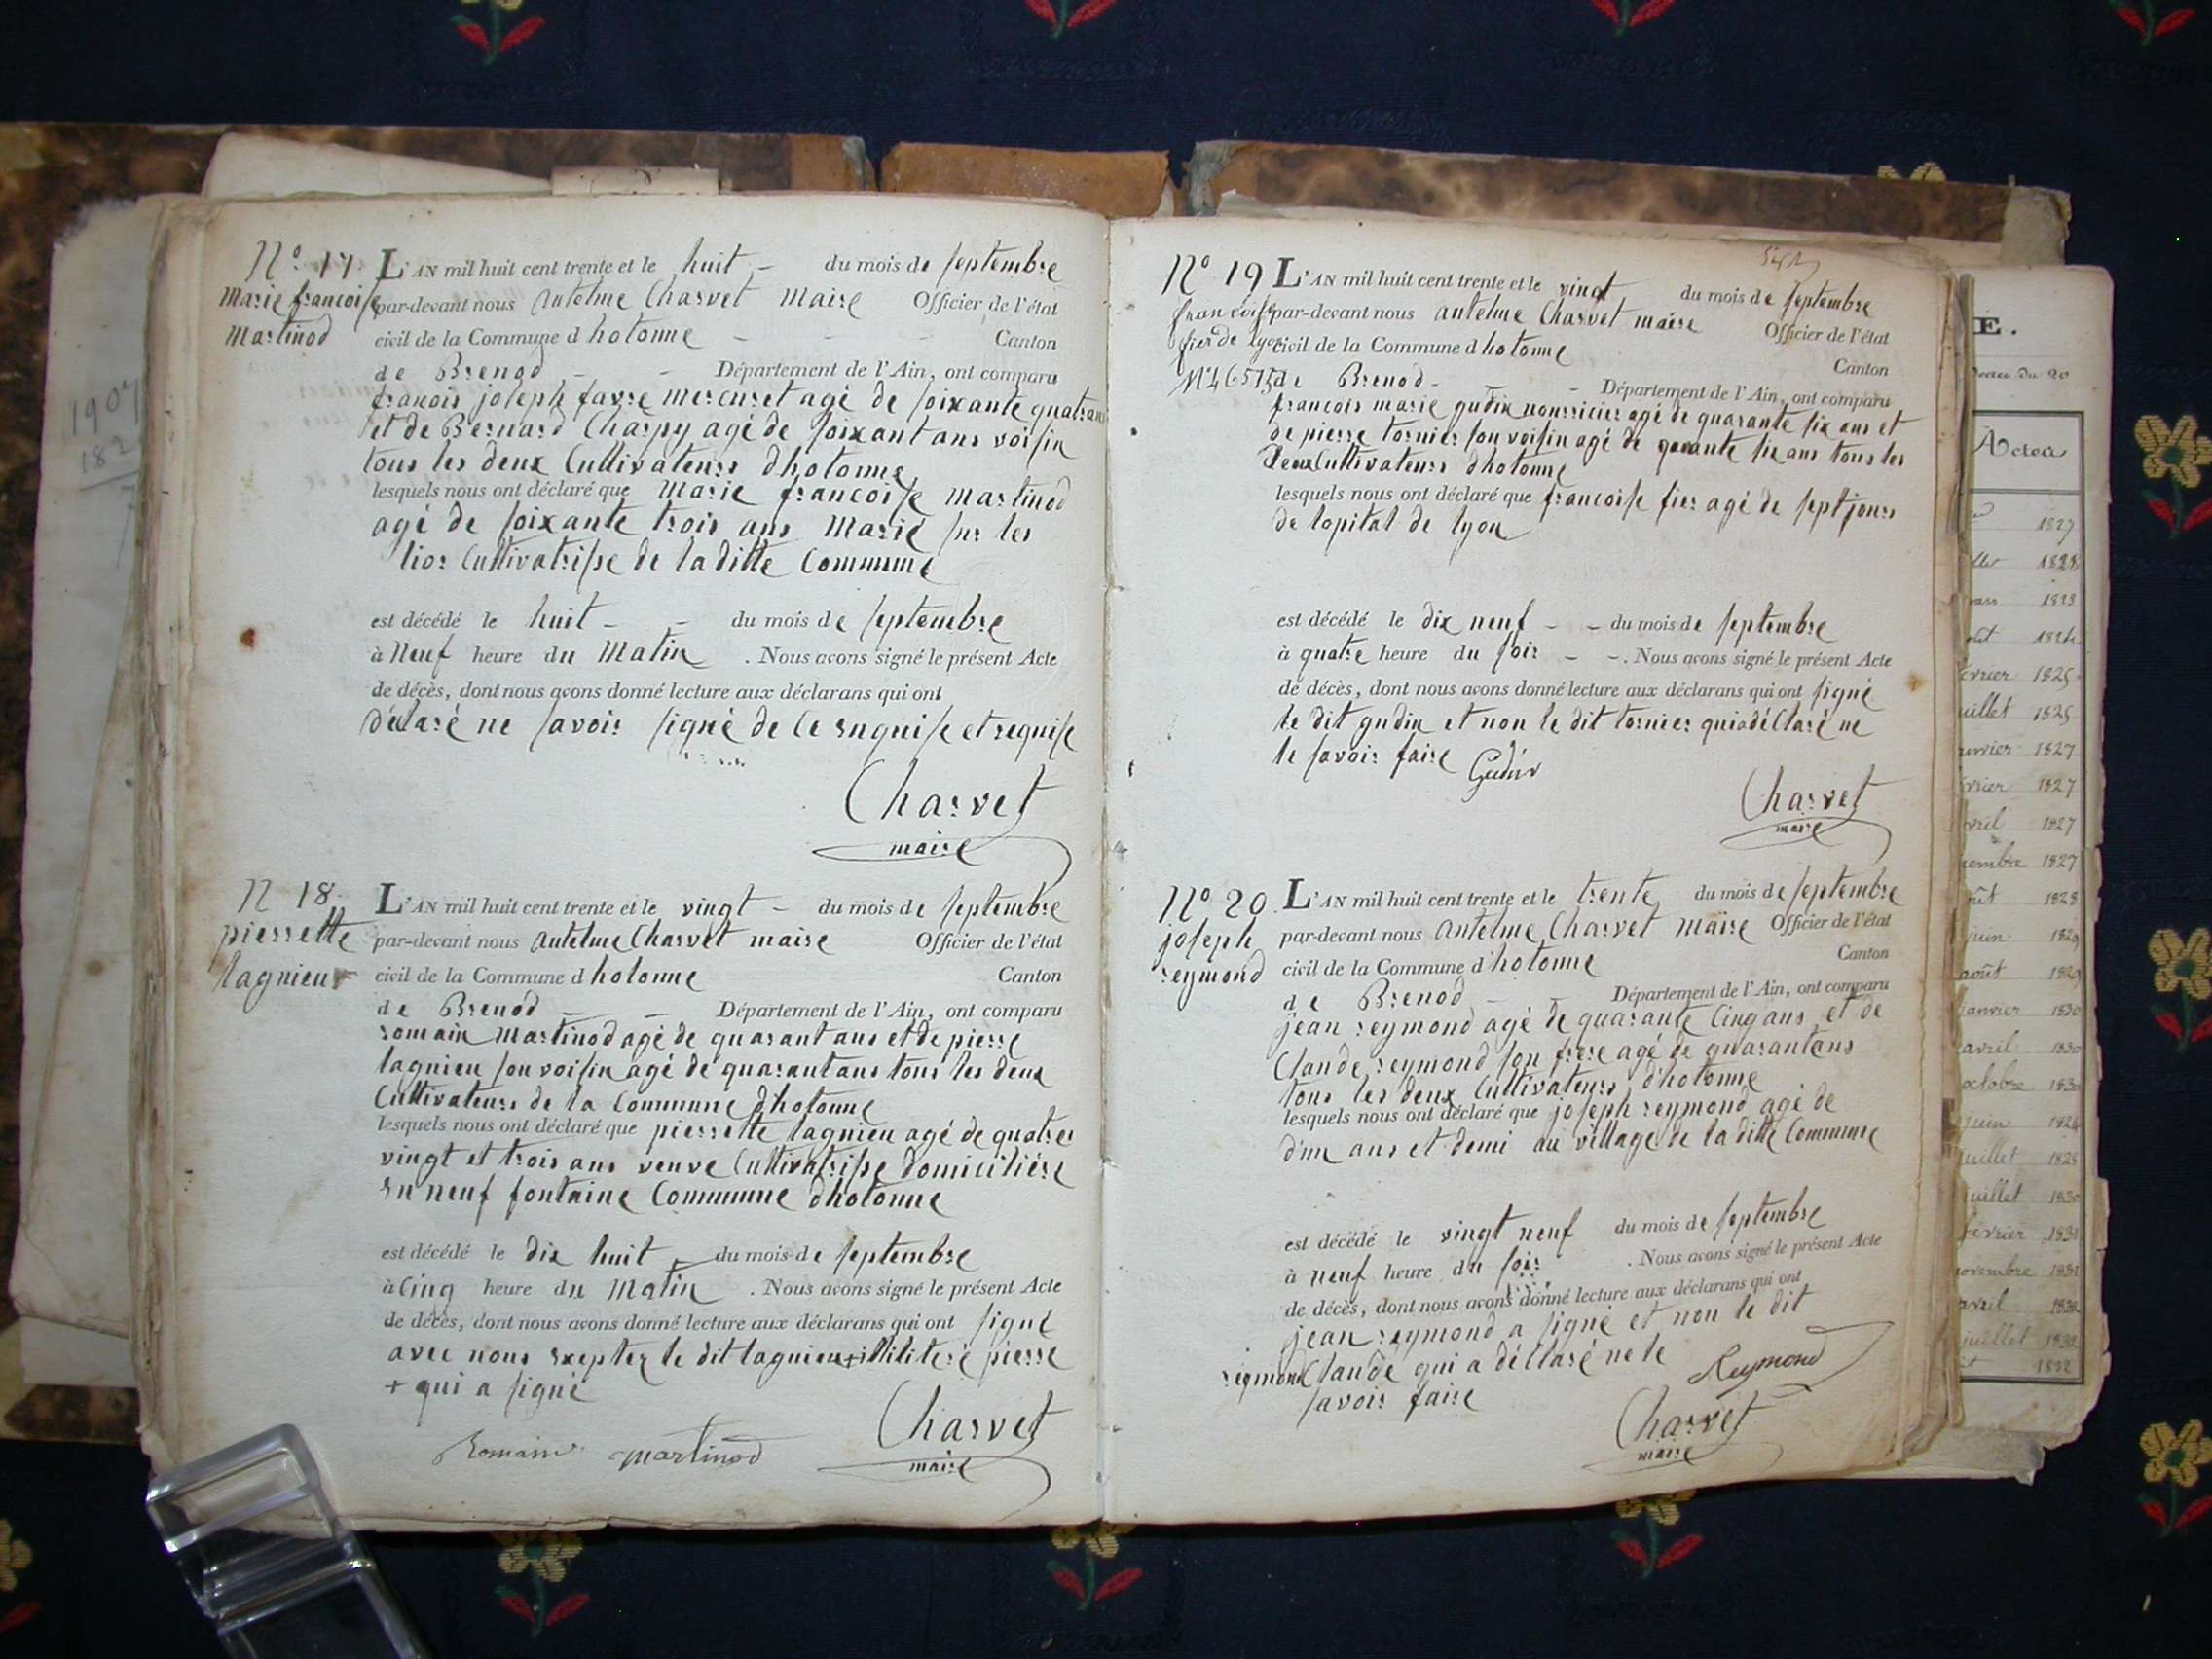 N° 17 L'AN mil huit cent trente et le huit - du mois de septembre
Marie francoise par-devant nous antelme Charvet Maire Officier de l'état
Martinod civil de la Commune d hotonne - - - Canton
de Brenod - - Département de l'Ain, ont comparu
francois joseph favre mercuret agé de soixante quatre ans
et de Bernard Charpy agé de soixant ans voisin
tous les deux Cultivateurs dhotonne
lesquels nous ont déclaré que Marie francoise martinod
agé de soixante trois ans Marié
Cultivatrisse de la ditte Commune
est décédé le huit - - du mois de septembre
à Neuf heure du Matin . Nous avons signé le présent Acte
de décès, dont nous avons donné lecture aux déclarans qui ont
déclaré ne savoir signé de ce enquise et requise
Charvet
maire
N 18. L'AN mil huit cent trente et le vingt - du mois de septembre
pierrette par-devant nous antelme Charvet maire Officier de l'état
lagnieu civil de la Commune d hotonne Canton
de Brenod - - Département de l'Ain, ont comparu
romain Martinod agé de quarant ans et de pierre
lagnieu son voisin agé de quarant ans tous les deux
Cultivateurs de la Commune dhotonne
lesquels nous ont déclaré que pierrette lagnieu agé de quatre
vingt et trois ans veuve Cultivatrisse domiciliére
en neuf fontaine Commune dhotonne
est décédé le dix huit - du mois de septembre
à Cinq heure du Matin . Nous avons signé le présent Acte
de décès, dont nous avons donné lecture aux déclarans qui ont signé
avec nous exeptez le dit lagnieu + illiliteré pierre
+ qui a signé
Charvet
Romain martinod
maire
N° 19 L'AN mil huit cent trente et le vingt du mois de septembre
francoise par-devant nous antelme Charvet maire Officier de l'état
fier de lyon civil de la Commune d hotonne Canton
de Brenod - - - Département de l'Ain, ont comparu
francois marie gudin nourricier agé de quarante six ans et
de pierre tornier son voisin agé de quarante six ans tous les
deux Cultivateurs dhotonne
lesquels nous ont déclaré que francoise fier agé de sept jours
de lopital de lyon
est décédé le dix neuf - - du mois de septembre
à quatre heure du soir - - . Nous avons signé le présent Acte
de décès, dont nous avons donné lecture aux déclarans qui ont signé
le dit gudin et non le dit tornier qui a déclaré ne
le savoir faire
Gudin
Charvet
maire
N° 20. L'AN mil huit cent trente et le trente du mois de septembre
joseph par-devant nous antelme Charvet maire Officier de l'état
reymond civil de la Commune d'hotonne Canton
de Brenod - - Département de l'Ain, ont comparu
jean reymond agé de quarante Cinq ans et de
Claude reymond son frere agé de quarantans
tous les deux Cultivateurs d'hotonne
lesquels nous ont déclaré que joseph reymond agé de
d'un ans et demi au village de la ditte Commune
est décédé le vingt neuf du mois de septembre
à neuf heure du soir . Nous avons signé le présent Acte
de décès, dont nous avons donné lecture aux déclarans qui ont
jean reymond a signé et non le dit
reymond Claude qui a déclaré ne le
savoir faire
Reymond
Charvet
maire
E.
Actes
1827
1828
1824
février 1825
juillet 1825
1827
février 1827
avril 1827
1827
août 1828
juin 1829
août 1829
janvier 1830
avril 1830
octobre 1830
juin
juillet
juillet 1830
février 1831
novembre 1831
avril 1832
juillet 1832
1832
1907
182